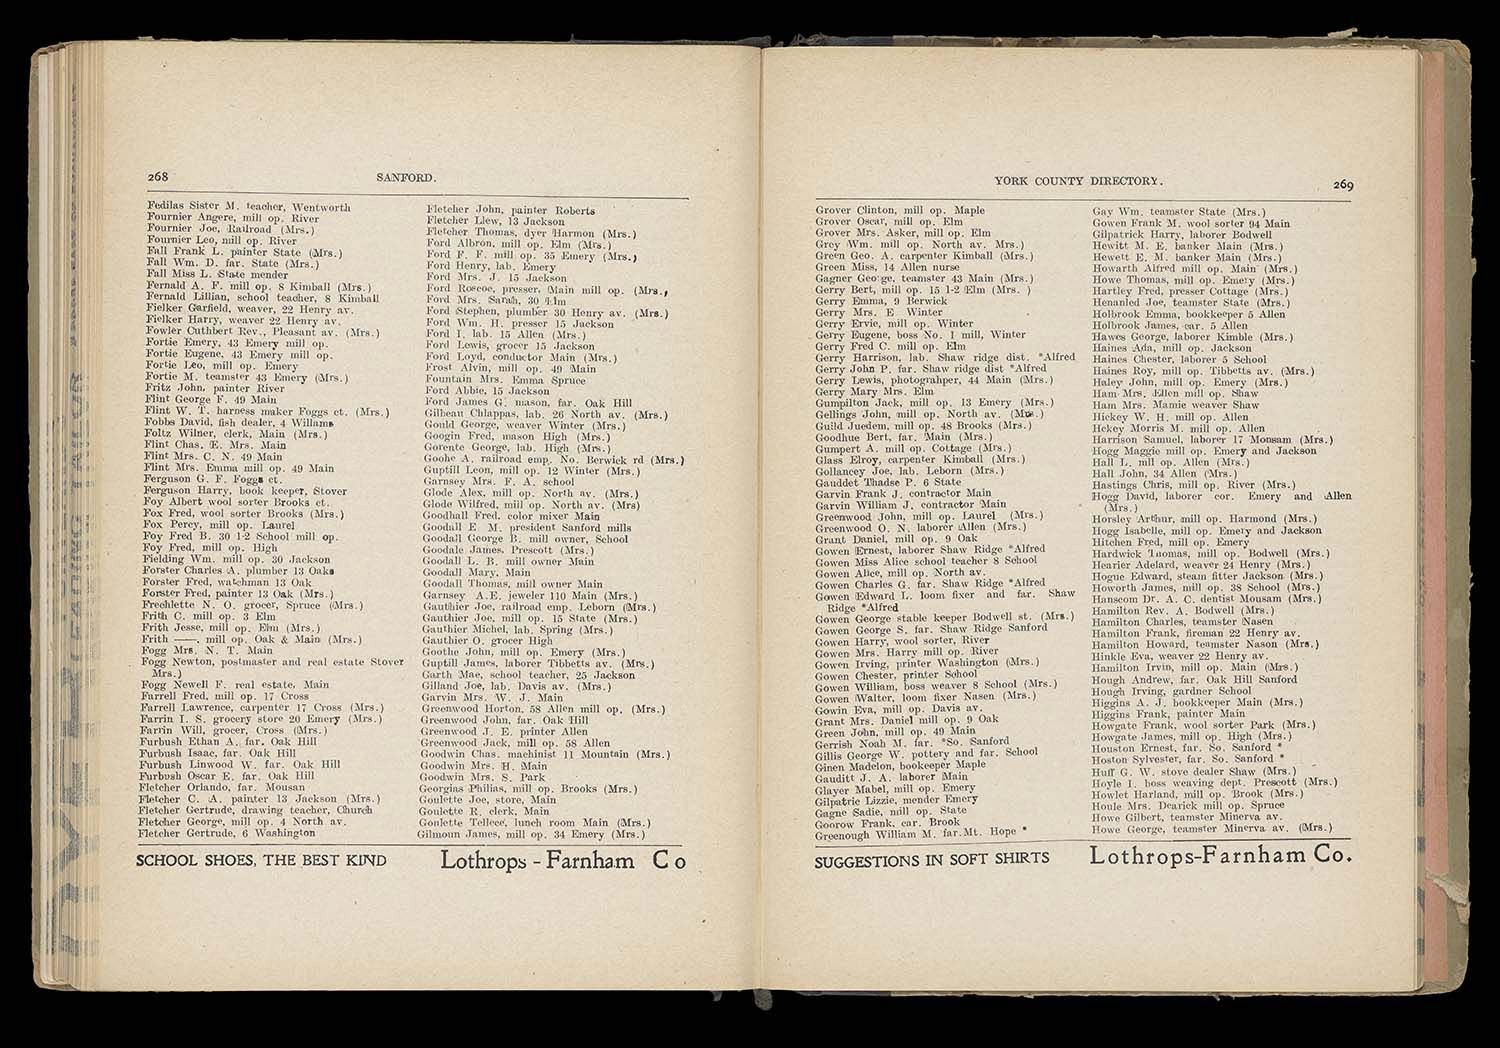 268
SANFORD.
Fedilas Sister M. teacher, Wentworth
Fournier Angere, mill op. River
Fournier Joe, Railroad (Mrs.)
Fournier Leo, mill op. River
Fall Frank L. painter State (Mrs.)
Fall Wm. D. far. State (Mrs.)
Fall Miss L. State mender
Fernald A. F. mill op. 8 Kimball (Mrs.)
Fernald Lillian, school teacher, 8 Kimball
Fielker Garfield, weaver, 22 Henry av.
Fielker Harry, weaver 22 Henry av.
Fowler Cuthbert Rev., Pleasant av. (Mrs.)
Fortie Emery, 43 Emery mill op.
Fortie Eugene, 43 Emery mill op.
Fortie Leo, mill op. Emery
Fortie M. teamster 43 Emery (Mrs.)
Fritz John, painter River
Flint George F. 49 Main
Flint W. T. harness maker Foggs ct. (Mrs.)
Fobbs David, fish dealer, 4 Willams
Foltz Wilner, clerk, Main (Mrs.)
Flint Chas. E. Mrs. Main
Flint Mrs. C. N. 49 Main
Flint Mrs. Emma mill op. 49 Main
Ferguson G. F. Foggs ct.
Ferguson Harry, book keeper, Stover
Foy Albert wool sorter Brooks ct.
Fox Fred, wool sorter Brooks (Mrs.)
Fox Percy, mill op. Laurel
Foy Fred B. 30 1-2 School mill op.
Foy Fred, mill op. High
Fielding Wm. mill op. 30 Jackson
Forster Charles A. plumber 13 Oaks
Forster Fred, watchman 13 Oak
Forster Fred, painter 13 Oak (Mrs.)
Frechlette N. O. grocer, Spruce (Mrs.)
Frith C. mill op. 3 Elm
Frith Jesse, mill op. Elm (Mrs.)
Frith ——. mill op. Oak & Main (Mrs.)
Fogg Mrs. N. T. Main
Fogg Newton, postmaster and real estate Stover
Mrs.)
Fogg Newell F. real estate, Main
Farrell Fred, mill op. 17 Cross
Farrell Lawrence, carpenter 17 Cross (Mrs.)
Farrin I. S. grocery store 20 Emery (Mrs.)
Farrin Will, grocer, Cross (Mrs.)
Furbush Ethan A. far. Oak Hill
Furbush Isaac, far. Oak Hill
Furbush Linwood W. far. Oak Hill
Furbush Oscar E. far. Oak Hill
Fletcher Orlando, far. Mousan
Fletcher C. A. painter 13 Jackson (Mrs.)
Fletcher Gertrude, drawing teacher, Church
Fletcher George, mill op. 4 North av.
Fletcher Gertrude, 6 Washington
Fletcher John, painter Roberts
Fletcher Llew, 13 Jackson
Fletcher Thomas, dyer Harmon (Mrs.)
Ford Albron, mill op. Elm (Mrs.)
Ford F. F. mill op. 35 Emery (Mrs.)
Ford Henry, lab. Emery
Ford Mrs. J. 15 Jackson
Ford Roscoe, presser, Main mill op. (Mrs.,
Ford Mrs. Sarah, 30 Elm
Ford Stephen, plumber 30 Henry av. (Mrs.)
Ford Wm. H. presser 15 Jackson
Ford I. lab. 15 Allen (Mrs.)
Ford Lewis, grocer 15 Jackson
Ford Loyd, conductor Main (Mrs.)
Frost Alvin, mill op. 49 Main
Fountain Mrs. Emma Spruce
Ford Abbie, 15 Jackson
Ford James G. mason, far. Oak Hill
Gilbeau Chlappas, lab. 26 North av. (Mrs.)
Gould George, weaver Winter (Mrs.)
Googin Fred, mason High (Mrs.)
Gorente George, lab. High (Mrs.)
Goohe A. railroad emp. No. Berwick rd (Mrs.)
Guptill Leon, mill op. 12 Winter (Mrs.)
Garnsey Mrs. F. A. school
Glode Alex, mill op. North av. (Mrs.)
Glode Wilfred, mill op. North av. (Mrs)
Goodhall Fred. color mixer Main
Goodall E M. president Sanford mills
Goodall George B. mill owner, School
Goodale James, Prescott (Mrs.)
Goodall L. B. mill owner Main
Goodall Mary, Main
Goodall Thomas, mill owner Main
Garnsey A.E. jeweler 110 Main (Mrs.)
Gauthier Joe, railroad emp. Leborn (Mrs.)
Gauthier Joe, mill op. 15 State (Mrs.)
Gauthier Michel, lab. Spring (Mrs.)
Gauthier O. grocer High
Goothe John, mill op. Emery (Mrs.)
Guptill James, laborer Tibbetts av. (Mrs.)
Garth Mae, school teacher, 25 Jackson
Gilland Joe, lab. Davis av. (Mrs.)
Garvin Mrs. W. J. Main
Greenwood Horton, 58 Allen mill op, (Mrs.)
Greenwood John, far. Oak Hill
Greenwood J. E. printer Allen
Greenwood Jack, mill op. 58 Allen
Goodwin Chas. machinist 11 Mountain (Mrs.)
Goodwin Mrs. H. Main
Goodwin Mrs. S. Park
Georgias Philias, mill op. Brooks (Mrs.)
Goulette Joe, store, Main
Goulette R. clerk, Main
Goulette Tellece, lunch room Main (Mrs.)
Gilmoun James, mill op. 34 Emery (Mrs.)
SCHOOL SHOES, THE BEST KIND Lothrops - Farnham Co
YORK COUNTY DIRECTORY.
269
Grover Clinton, mill op. Maple
Grover Oscar, mill op. Elm
Grover Mrs. Asker, mill op. Elm
Grey Wm. mill op. North av. Mrs.)
Green Geo. A. carpenter Kimball (Mrs.)
Green Miss, 14 Allen nurse
Gagner George, teamster 43 Main (Mrs.)
Gerry Bert, mill op. 15 1-2 Elm (Mrs. )
Gerry Emma, 9 Berwick
Gerry Mrs. E Winter
Gerry Ervie, mill op. Winter
Gerry Eugene, boss No. 1 mill, Winter
Gerry Fred C. mill op. Elm
Gerry Harrison, lab. Shaw ridge dist. *Alfred
Gerry John P. far. Shaw ridge dist *Alfred
Gerry Lewis, photograhper, 44 Main (Mrs.)
Gerry Mary Mrs. Elm
Gumpilton Jack, mill op. 13 Emery (Mrs.)
Gellings John, mill op. North av. (Mrs.)
Guild Juedem, mill op. 48 Brooks (Mrs.)
Goodhue Bert, far. Main (Mrs.)
Gumpert A. mill op. Cottage (Mrs.)
Glass Elroy, carpenter Kimball (Mrs.)
Gollancey Joe, lab. Leborn (Mrs.)
Gauddet Thadse P. 6 State
Garvin Frank J. contractor Main
Garvin William J. contractor Main
Greenwood John, mill op. Laurel (Mrs.)
Greenwood O. N. laborer Allen (Mrs.)
Grant Daniel, mill op. 9 Oak
Gowen Ernest, laborer Shaw Ridge *Alfred
Gowen Miss Alice school teacher 8 School
Gowen Alice, mill op. North av.
Gowen Charles G. far. Shaw Ridge *Alfred
Gowen Edward L. loom fixer and far. Shaw
Ridge *Alfred
Gowen George stable keeper Bodwell st. (Mrs.)
Gowen George S. far. Shaw Ridge Sanford
Gowen Harry, wool sorter, River
Gowen Mrs. Harry mill op. River
Gowen Irving, printer Washington (Mrs.)
Gowen Chester, printer School
Gowen William, boss weaver 8 School (Mrs.)
Gowen Walter, loom fixer Nasen (Mrs.)
Gowin Eva, mill op. Davis av.
Grant Mrs. Daniel mill op. 9 Oak
Green John, mill op. 49 Main
Gerrish Noah M. far. *So. Sanford
Gillis George W. pottery and far. School
Ginen Madelon, bookeeper Maple
Gauditt J. A. laborer Main
Glayer Mabel, mill op. Emery
Gilpatric Lizzie, mender Emery
Gagne Sadie, mill op. State
Goorow Frank, car. Brook
Greenough William M. far.Mt. Hope *
Gay Wm. teamster State (Mrs.)
Gowen Frank M. wool sorter 94 Main
Gilpatrick Harry, laborer Bodwell
Hewitt M. E. banker Main (Mrs.)
Hewett E. M. banker Main (Mrs.)
Howarth Alfred mill op. Main (Mrs.)
Howe Thomas, mill op. Emery (Mrs.)
Hartley Fred, presser Cottage (Mrs.)
Henanled Joe, teamster State (Mrs.)
Holbrook Emma, bookkeeper 5 Allen
Holbrook James, car. 5 Allen
Hawes George, laborer Kimble (Mrs.)
Haines Ada, mill op. Jackson
Haines Chester, laborer 5 School
Haines Roy, mill op. Tibbetts av. (Mrs.)
Haley John, mill op. Emery (Mrs.)
Ham Mrs. Ellen mill op. Shaw
Ham Mrs. Mamie weaver Shaw
Hickey W. H. mill op. Allen
Hckey Morris M. mill op. Allen
Harrison Samuel, laborer 17 Mousam (Mrs.)
Hogg Maggie mill op. Emery and Jackson
Hall L. mll op. Allen (Mrs.)
Hall John, 34 Allen (Mrs.)
Hastings Chris, mill op. River (Mrs.)
Hogg David, laborer cor. Emery and Allen
(Mrs.)
Horsley Arthur, mill op. Harmond (Mrs.)
Hogg Isabelle, mill op. Emery and Jackson
Hitchen Fred, mill op. Emery
Hardwick Thomas, mill op. Bodwell (Mrs.)
Hearier Adelard, weaver 24 Henry (Mrs.)
Hogue Edward, steam fitter Jackson (Mrs.)
Howorth James, mill op. 38 School (Mrs.)
Hanscom Dr. A. C. dentist Mousam (Mrs.)
Hamilton Rev. A. Bodwell (Mrs.)
Hamilton Charles, teamster Nasen
Hamilton Frank, fireman 22 Henry av.
Hamilton Howard, teamster Nason (Mrs.)
Hinkle Eva, weaver 22 Henry av.
Hamilton Irvin, mill op. Main (Mrs.)
Hough Andrew, far. Oak Hill Sanford
Hough Irving, gardner School
Higgins A. J. bookkeeper Main (Mrs.)
Higgins Frank, painter Main
Howgate Frank, wool sorter Park (Mrs.)
Howgate James, mill op. High (Mrs.)
Houston Ernest, far. So. Sanford *
Hoston Sylvester, far. So. Sanford *
Huff G. W. stove dealer Shaw (Mrs.)
Hoyle I. boss weaving dept. Prescott (Mrs.)
Howlet Harland, mill op. Brook (Mrs.)
Houle Mrs. Dearick mill op. Spruce
Howe Gilbert, teamster Minerva av.
Howe George, teamster Minerva av. (Mrs.)
SUGGESTIONS IN SOFT SHIRTS Lothrops-Farnham Co.